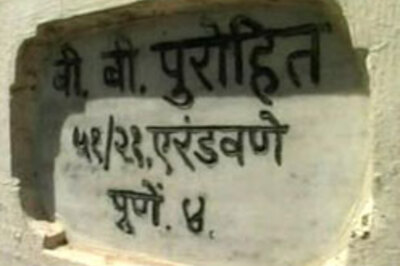 बी. बी. पुरोहित
५१/२१,एरंडवणे
पूणें. ४.